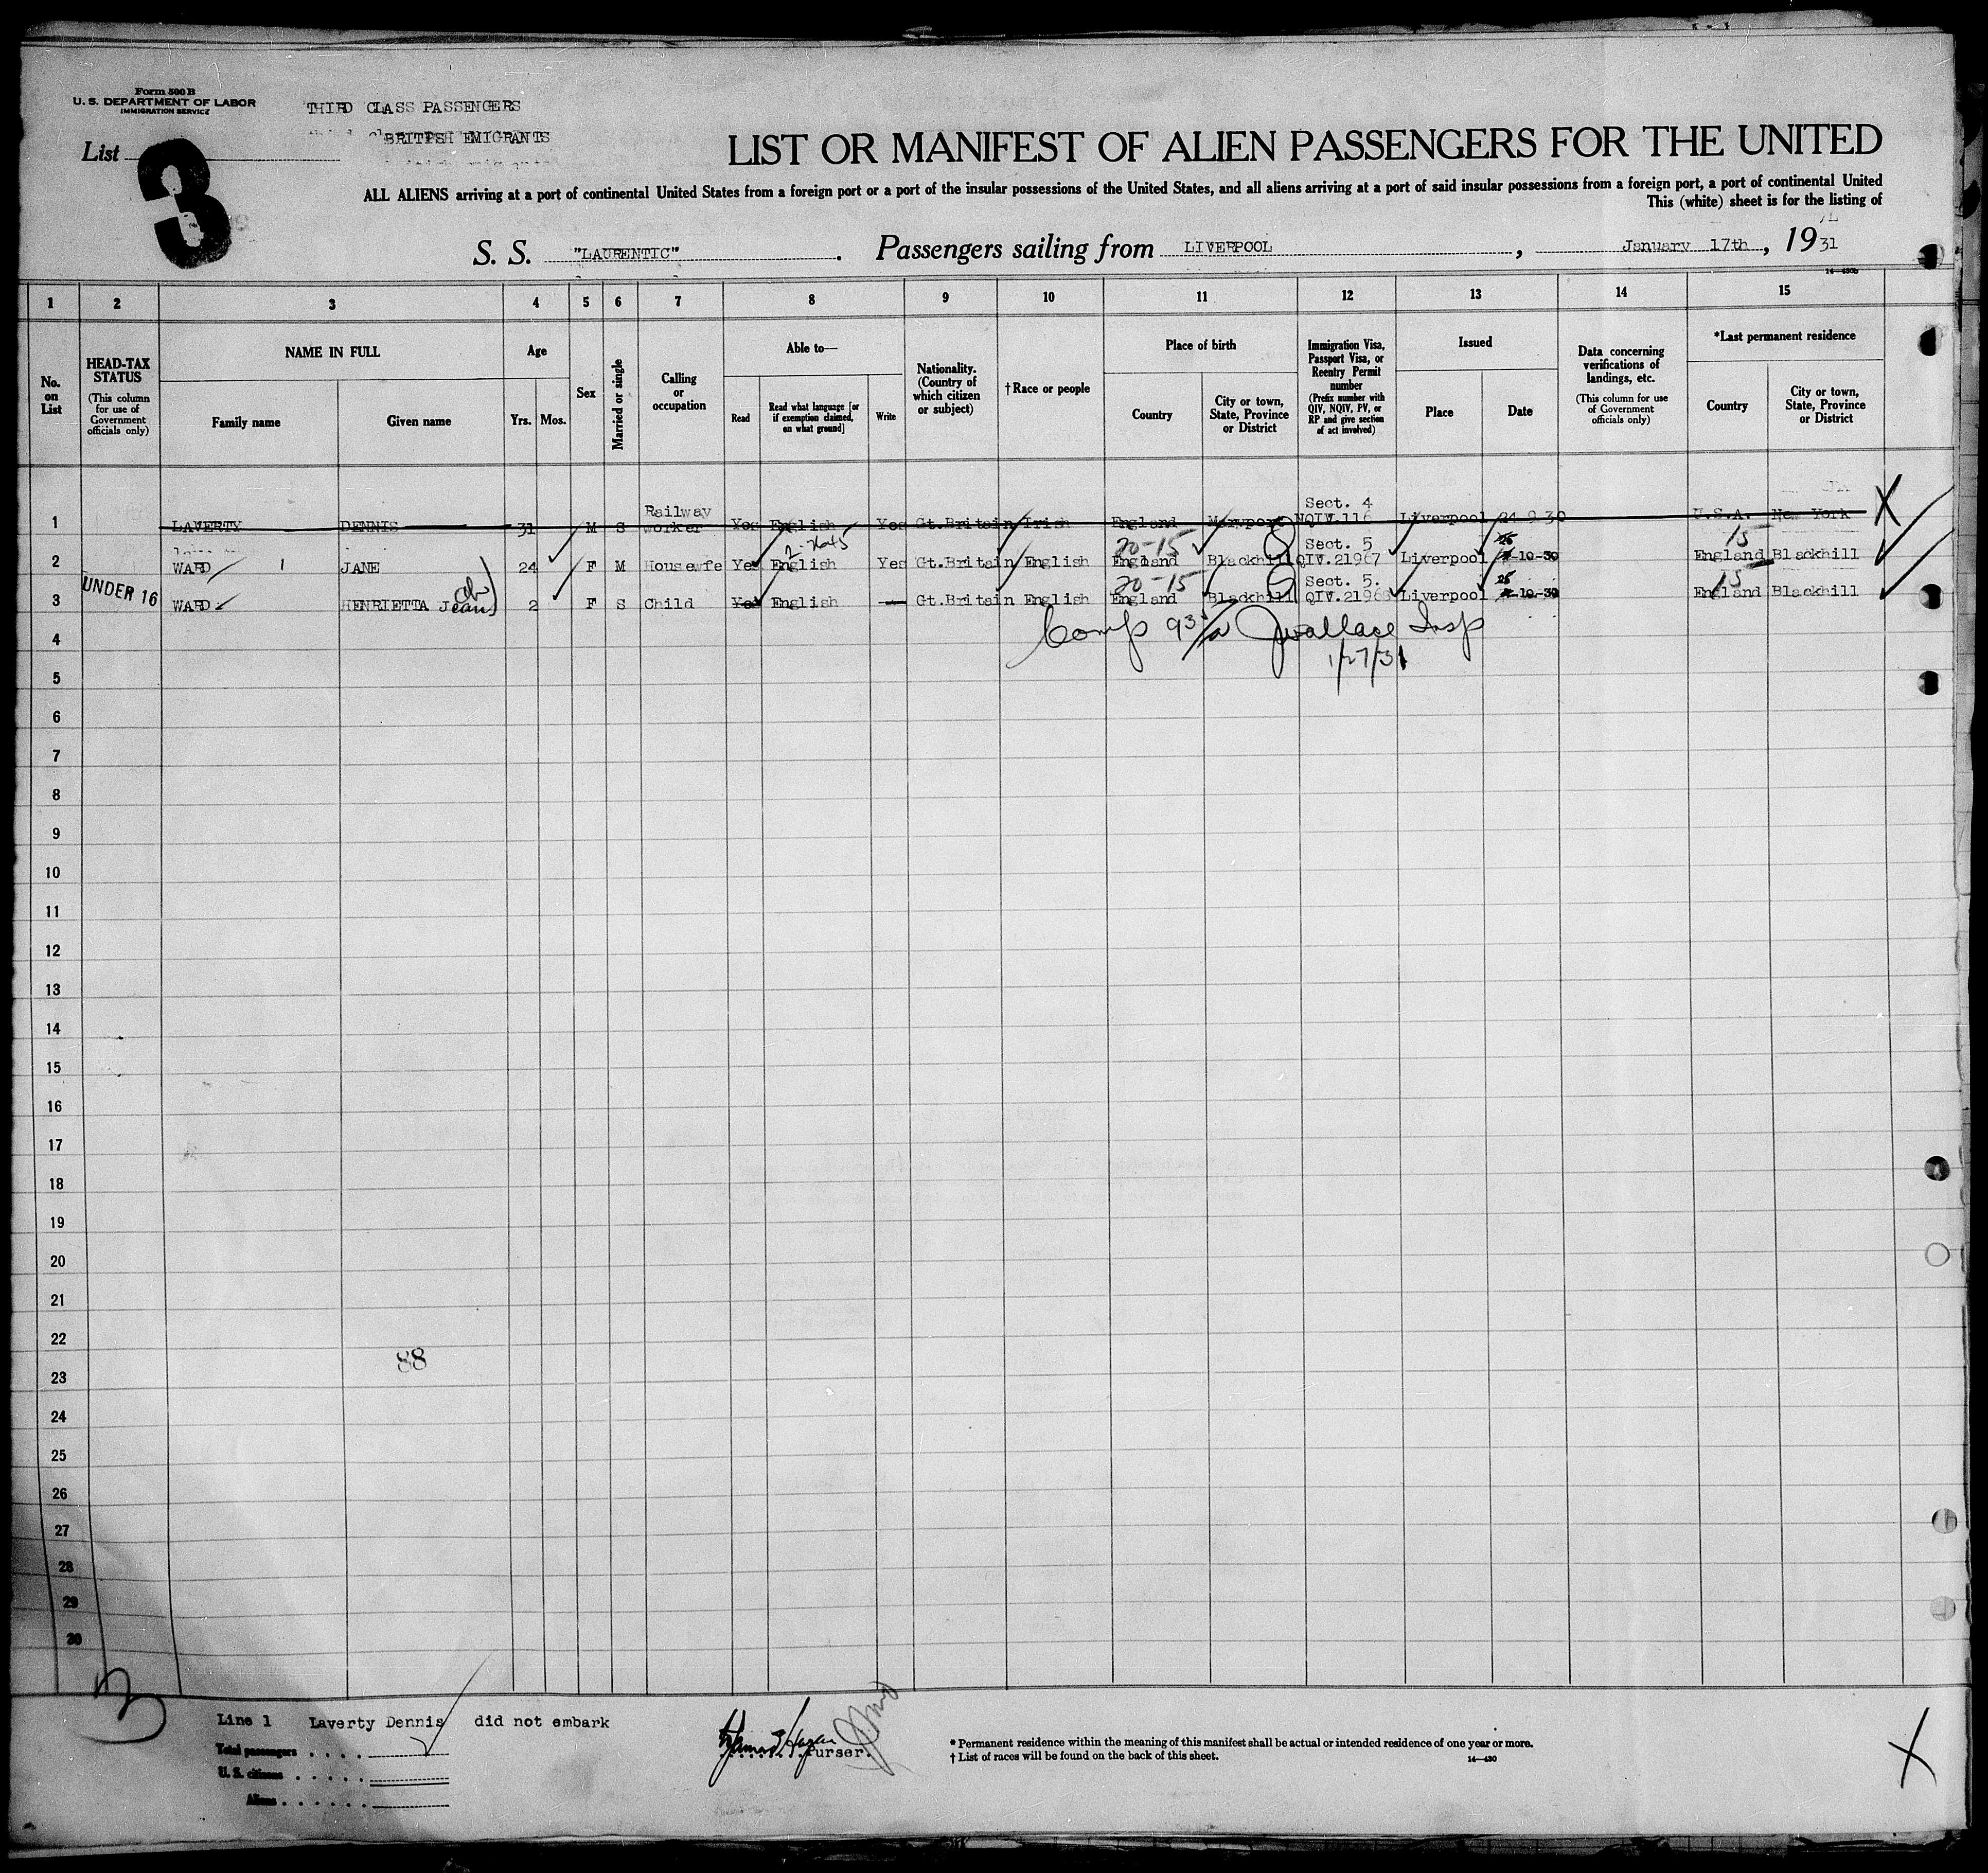 Form 500 B
U. S. DEPARTMENT OF LABOR
IMMIGRATION SERVICE
THIRD CLASS PASSENGERS
BRITISH EMIGRANTS
List
3
LIST OR MANIFEST OF ALIEN PASSENGERS FOR THE UNITED
ALL ALIENS arriving at a port of continental United States from a foreign port or a port of the insular possessions of the United States, and all aliens arriving at a port of said insular possessions from a foreign port, a port of continental United
This (white) sheet is for the listing of
S. S. "LAURENTIC". Passengers sailing from LIVERPOOL, January 17th, 1931
14—430b
1 2 3 4 5 6 7 8 9 10 11 12 13 14 15
No. on List
HEAD-TAX STATUS
(This column for use of Government officials only)
NAME IN FULL
Family name
Given name
Age
Yrs. Mos.
Sex
Married or single
Calling or occupation
Able to—
Read
Read what language [or if exemption claimed, on what ground]
Write
Nationality. (Country of which citizen or subject)
†Race or people
Place of birth
Country
City or town, State, Province or District
Immigration Visa, Passport Visa, or Reentry Permit number
(Prefix number with QIV, NQIV, PV, or RP and give section of act involved)
Issued
Place
Date
Data concerning verifications of landings, etc.
(This column for use of Government officials only)
*Last permanent residence
Country
City or town, State, Province or District
Railway Sect. 4
1 LAVERTY DENNIS 31 M S worker Yes English Yes Gt.Britain Irish England Maryport NQIV.116 Liverpool 24-9-30 U.S.A. New York X
20-15 Sect. 5 25 15
2 WARD 1 JANE 24 F M Housewfe Yes English Yes Gt.Britain English England Blackhill QIV.21967 Liverpool -10-30 England Blackhill
UNDER 16 20-15 Sect. 5. 25 15
3 WARD HENRIETTA Jean 2 F S Child Yes English — Gt.Britain English England Blackhill QIV.21968 Liverpool -10-30 England Blackhill
4 Comp 93 JWallace Insp
1/27/31
5
6
7
8
9
10
11
12
13
14
15
16
17
18
19
20
21
22
88
23
24
25
26
27
28
29
30
3
Line 1 Laverty Dennis did not embark
Total passengers
U. S. citizens
Aliens
Purser.
* Permanent residence within the meaning of this manifest shall be actual or intended residence of one year or more.
† List of races will be found on the back of this sheet.
14—430
X